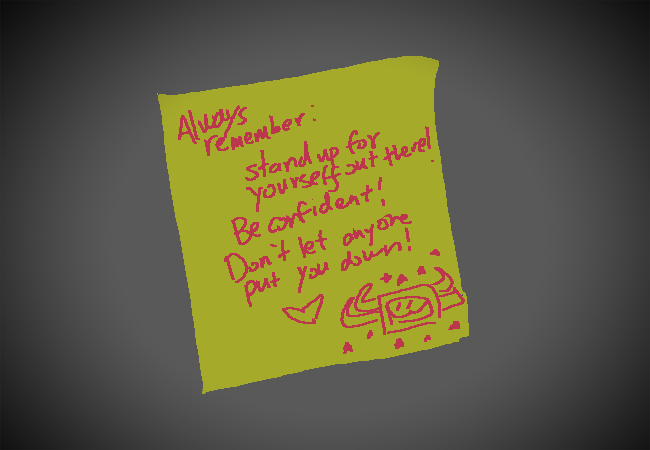 Always
remember:
stand up for
yourself out there!
Be confident!
Don't let anyone
put you down!